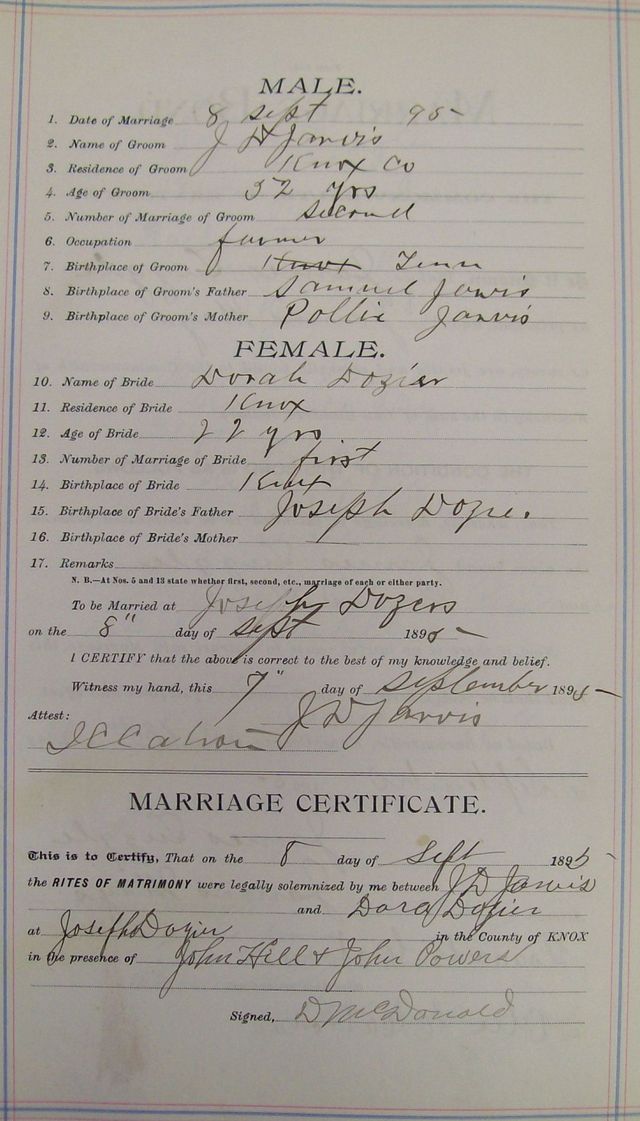 MALE.
1. Date of Marriage 8 sept 95
2. Name of Groom J D Jarvis
3. Residence of Groom Knox Co
4. Age of Groom 32 yrs
5. Number of Marriage of Groom second
6. Occupation farmer
7. Birthplace of Groom Knox Tenn
8. Birthplace of Groom's Father Samuel Jarvis
9. Birthplace of Groom's Mother Pollie Jarvis
FEMALE.
10. Name of Bride Dorah Dozier
11. Residence of Bride Knox
12. Age of Bride 22 yrs
13. Number of Marriage of Bride first
14. Birthplace of Bride Knox
15. Birthplace of Bride's Father Joseph Dozier
16. Birthplace of Bride's Mother
17. Remarks
N. B.—At Nos. 5 and 13 state whether first, second, etc., marriage of each or either party.
To be Married at Joseph Dozers
on the 8" day of sept 1895
I CERTIFY that the above is correct to the best of my knowledge and belief.
Witness my hand, this 7" day of September 1895
Attest: J D Jarvis
MARRIAGE CERTIFICATE.
This is to Certify, That on the 8 day of Sept 1895
the RITES OF MATRIMONY were legally solemnized by me between J D Jarvis
and Dora Dozier
at Joseph Dozier in the County of KNOX
in the presence of John Hill & John Powers
Signed, D McDonald